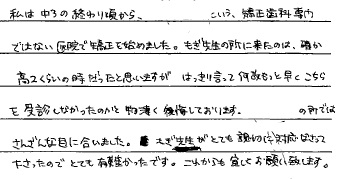 私は中3の終わり頃から、 こういう、矯正歯科専門
ではない医院で矯正を始めました。もぎ先生の所に来たのは、確か
高2くらいの時だったと思いますが はっきり言って何故もっと早くこちら
を受診しなかったのかと物凄く後悔しております。 の所では
さんざんな目に合いました。 もぎ先生がとても 対応なさって
下さったのでとても有難かったです。これからも宜しくお願い致します。